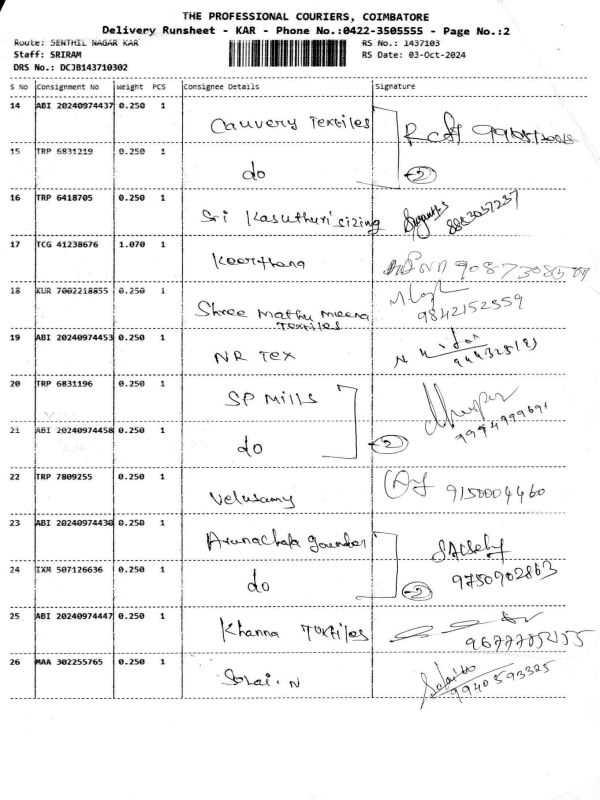 THE PROFESSIONAL COURIERS, COIMBATORE
Delivery Runsheet - KAR - Phone No.:0422-3505555 - Page No.:2
Route: SENTHIL NAGAR KAR
RS No.: 1437103
Staff: SRIRAM
RS Date: 03-Oct-2024
DRS No.: DCJB143710302
S No Consignment No Weight PCS Consignee Details Signature
14 ABI 20240974437 0.250 1 Cauvery Textiles
15 TRP 6831219 0.250 1 do 2
16 TRP 6418705 0.250 1 Sri Kasuthuri sizing 8883057237
17 TCG 41238676 1.070 1 Keerthana
18 KUR 7002218855 0.250 1 Shree Mathu Meena Textiles 9842152559
19 ABI 20240974453 0.250 1 NR Tex
20 TRP 6831196 0.250 1 SP Mills 9994999691
21 ABI 20240974458 0.250 1 do 2
22 TRP 7809255 0.250 1 Velusamy 9150004460
23 ABI 20240974430 0.250 1 Arunachala gounder
24 IXM 507126636 0.250 1 do 2 9750902863
25 ABI 20240974447 0.250 1 Khanna Textiles
26 MAA 302255765 0.250 1 9940593325